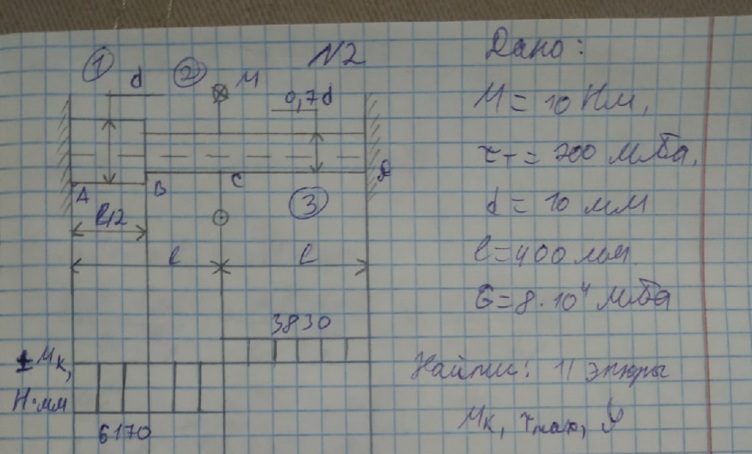 N2
1 d 2 M 0,7d
A B C D
3
l/2 l l
3830
Mк,
Н·мм
6170
Дано:
M = 10 Нм,
τт = 200 МПа,
d = 10 мм
l = 400 мм
G = 8·10⁴ МПа
Найти: 1) эпюры
Mк, τmax, φ